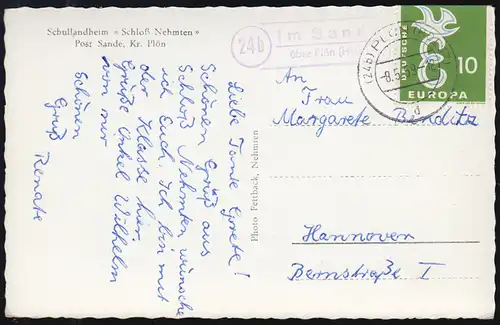 Schullandheim »Schloß Nehmten«
Post Sande, Kr. Plön
24b
Im Sande
über Plön
(24b) PLÖN
-8.5.59
d
DEUTSCHE
10
EUROPA
Liebe Tante Grete!
Schönen Gruß aus
Schloß Nehmten wünsche
ich Euch. Ich bin mit
der Klasse hier.
Grüße Onkel Wilhelm
von mir
Schönen
Gruß
Renate
Photo Fettback, Nehmten
An
Frau
Margarete Benditz
Hannover
Bernstraße I